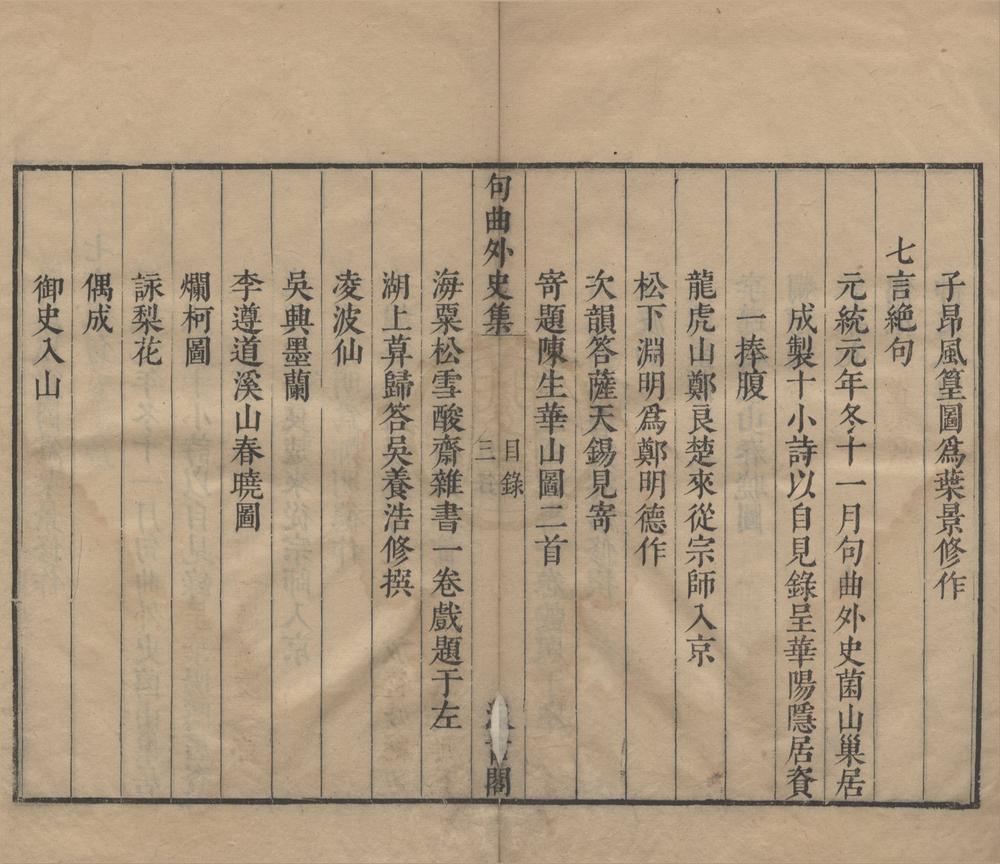 子昻風篁圖爲葉景修作
七言絶句
元統元年冬十一月句曲外史菌山巢居
成製十小詩以自見錄呈華陽隱居資
一捧腹
龍虎山鄭良楚來從宗師入京
松下淵明爲鄭明德作
次韻答薩天錫見寄
寄題陳生華山圖二首
句曲外史集
目錄
三
閣
海粟松雪酸齋雜書一卷戲題于左
湖上暮歸答吳養浩修撰
凌波仙
吳興墨蘭
李遵道溪山春曉圖
爛柯圖
詠梨花
偶成
御史入山